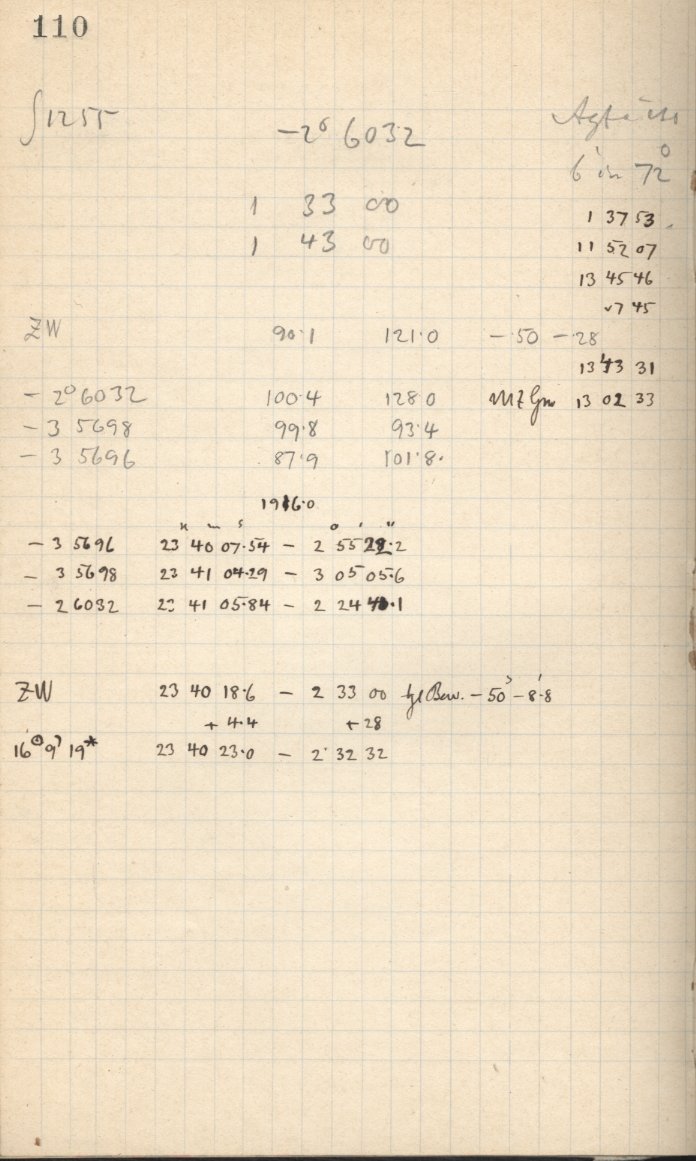 110
1255 −2° 6032
6 in 72°
1 33 00 1 37 53
1 43 00 11 52 07
13 45 46
7 45
ZW 90·1 121·0 − 50 − 28
13 43 31
− 2° 6032 100·4 128·0 MZ Gm 13 02 33
− 3 5698 99·8 93·4
− 3 5696 87·9 101·8·
19 6·0
h m s ° ' "
− 3 5696 23 40 07·54 − 2 55 28·2
− 3 5698 23 41 04·29 − 3 05 05·6
− 2 6032 23 41 05·84 − 2 24 ·1
ZW 23 40 18·6 − 2 33 00 tgl Bew. − 50ˢ − 8·8
+ 4·4 + 28
16 9 19* 23 40 23·0 − 2 32 32